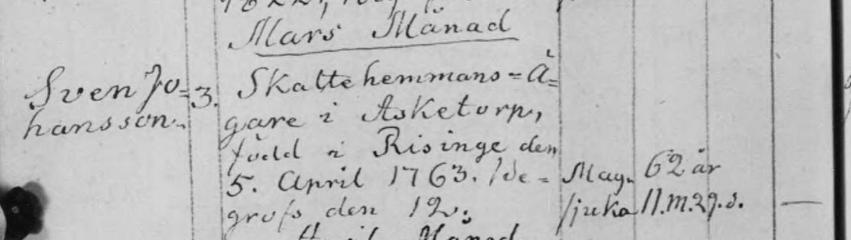 Mars Månad
Sven Jo=
hansson.
3. Skattehemmans=Ä=
gare i Asketorp,
född i Risinge den
5. April 1763. /Be=
grofs den 12.
Mag=
sjuka
62 år
11.m.29.d. —
Månad